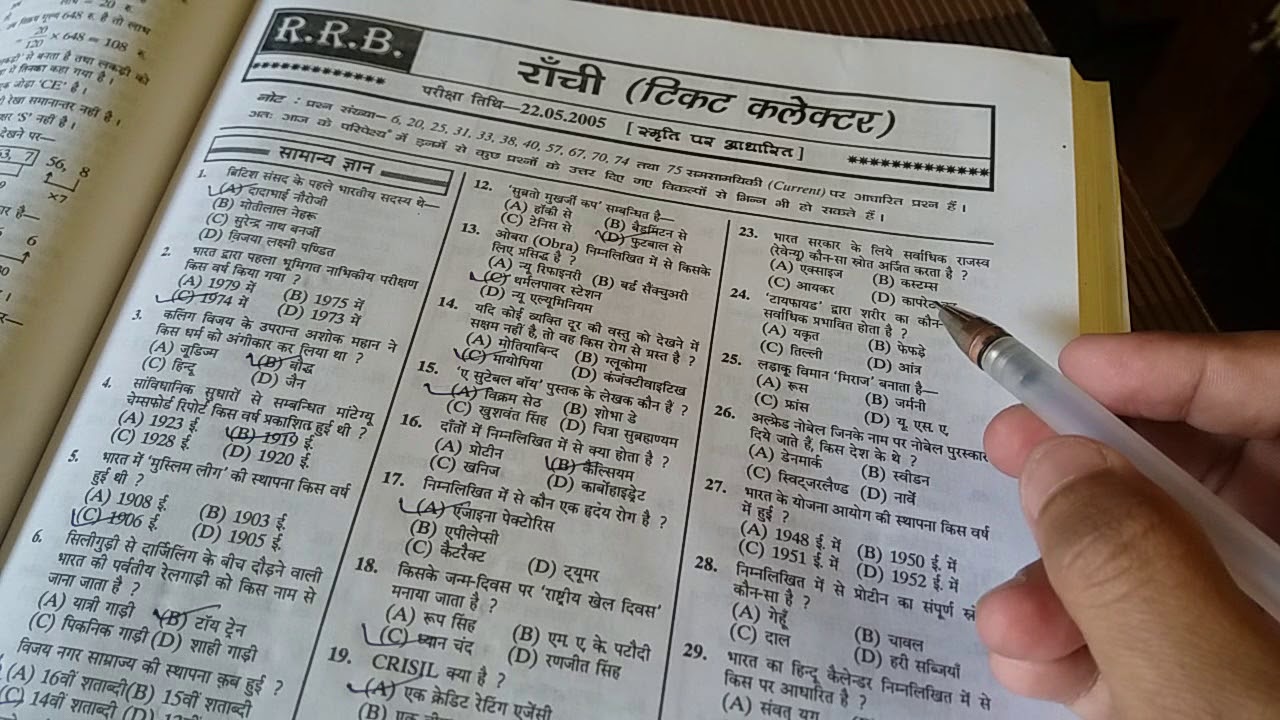 648 रु. है तो लाभ
20/120 × 648 = 108 रु.
जोड़ा 'CE' है।
रेखा समानान्तर नहीं है।
'S' नहीं है।
देखने पर—
63, 7 56, 8
×7
R.R.B.
राँची (टिकट कलेक्टर)
परीक्षा तिथि—22.05.2005 [स्मृति पर आधारित]
नोट : प्रश्न संख्या— 6, 20, 25, 31, 33, 38, 40, 57, 67, 70, 74 तथा 75 समसामयिकी (Current) पर आधारित प्रश्न हैं।
अतः आज के परिपेक्ष्य में इनमें से कुछ प्रश्नों के उत्तर दिए गए विकल्पों से भिन्न भी हो सकते हैं।
सामान्य ज्ञान
1. ब्रिटिश संसद के पहले भारतीय सदस्य थे—
(A) दादाभाई नौरोजी
(B) मोतीलाल नेहरू
(C) सुरेन्द्र नाथ बनर्जी
(D) विजया लक्ष्मी पण्डित
2. भारत द्वारा पहला भूमिगत नाभिकीय परीक्षण
किस वर्ष किया गया ?
(A) 1979 में (B) 1975 में
(C) 1974 में (D) 1973 में
3. कलिंग विजय के उपरान्त अशोक महान ने
किस धर्म को अंगीकार कर लिया था ?
(A) जूडिज्म (B) बौद्ध
(C) हिन्दू (D) जैन
4. सांविधानिक सुधारों से सम्बन्धित मांटेग्यू
चेम्सफोर्ड रिपोर्ट किस वर्ष प्रकाशित हुई थी ?
(A) 1923 ई. (B) 1919 ई.
(C) 1928 ई. (D) 1920 ई.
5. भारत में 'मुस्लिम लीग' की स्थापना किस वर्ष
हुई थी ?
(A) 1908 ई. (B) 1903 ई.
(C) 1906 ई. (D) 1905 ई.
6. सिलीगुड़ी से दार्जिलिंग के बीच दौड़ने वाली
भारत की पर्वतीय रेलगाड़ी को किस नाम से
जाना जाता है ?
(A) यात्री गाड़ी (B) टॉय ट्रेन
(C) पिकनिक गाड़ी (D) शाही गाड़ी
विजय नगर साम्राज्य की स्थापना कब हुई ?
(A) 16वीं शताब्दी (B) 15वीं शताब्दी
(C) 14वीं शताब्दी (D)
12. 'सुब्रतो मुखर्जी कप' सम्बन्धित है—
(A) हॉकी से (B) बैडमिंटन से
(C) टेनिस से (D) फुटबाल से
13. ओबरा (Obra) निम्नलिखित में से किसके
लिए प्रसिद्ध है ?
(A) न्यू रिफाइनरी (B) बर्ड सैंक्चुअरी
(C) थर्मलपावर स्टेशन
(D) न्यू एल्युमिनियम
14. यदि कोई व्यक्ति दूर की वस्तु को देखने में
सक्षम नहीं है, तो वह किस रोग से ग्रस्त है ?
(A) मोतियाबिन्द (B) ग्लूकोमा
(C) मायोपिया (D) कंजंक्टीवाइटिख
15. 'ए सुटेबल बॉय' पुस्तक के लेखक कौन है ?
(A) विक्रम सेठ (B) शोभा डे
(C) खुशवंत सिंह (D) चित्रा सुबह्मण्यम
16. दाँतों में निम्नलिखित में से क्या होता है ?
(A) प्रोटीन (B) कैल्सियम
(C) खनिज (D) कार्बोहाइड्रेट
17. निम्नलिखित में से कौन एक हृदय रोग है ?
(A) एंजाइना पेक्टोरिस
(B) एपीलेप्सी
(C) कैटरैक्ट (D) ट्यूमर
18. किसके जन्म-दिवस पर 'राष्ट्रीय खेल दिवस'
मनाया जाता है ?
(A) रूप सिंह (B) एम. ए. के. पटौदी
(C) ध्यान चंद (D) रणजीत सिंह
19. CRISIL क्या है ?
(A) एक क्रेडिट रेटिंग एजेंसी
(B) एक
23. भारत सरकार के लिये सर्वाधिक राजस्व
(रेवेन्यू) कौन-सा स्रोत अर्जित करता है ?
(A) एक्साइज (B) कस्टम्स
(C) आयकर (D) कापरेट
24. 'टायफायड' द्वारा शरीर का कौन-
सर्वाधिक प्रभावित होता है ?
(A) यकृत (B) फेफड़े
(C) तिल्ली (D) आंत्र
25. लड़ाकू विमान 'मिराज' बनाता है—
(A) रूस (B) जर्मनी
(C) फ्रांस (D) यू. एस. ए.
26. अल्फ्रेड नोबेल जिनके नाम पर नोबेल पुरस्कार
दिये जाते है, किस देश के थे ?
(A) डेनमार्क (B) स्वीडन
(C) स्विट्जरलैण्ड (D) नार्वे
27. भारत के योजना आयोग की स्थापना किस वर्ष
में हुई ?
(A) 1948 ई. में (B) 1950 ई. में
(C) 1951 ई. में (D) 1952 ई. में
28. निम्नलिखित में से प्रोटीन का संपूर्ण
कौन-सा है ?
(A) गेहूँ (B) चावल
(C) दाल (D) हरी सब्जियाँ
29. भारत का हिन्दू कैलेन्डर निम्नलिखित में से
किस पर आधारित है ?
(A) संवत् युग